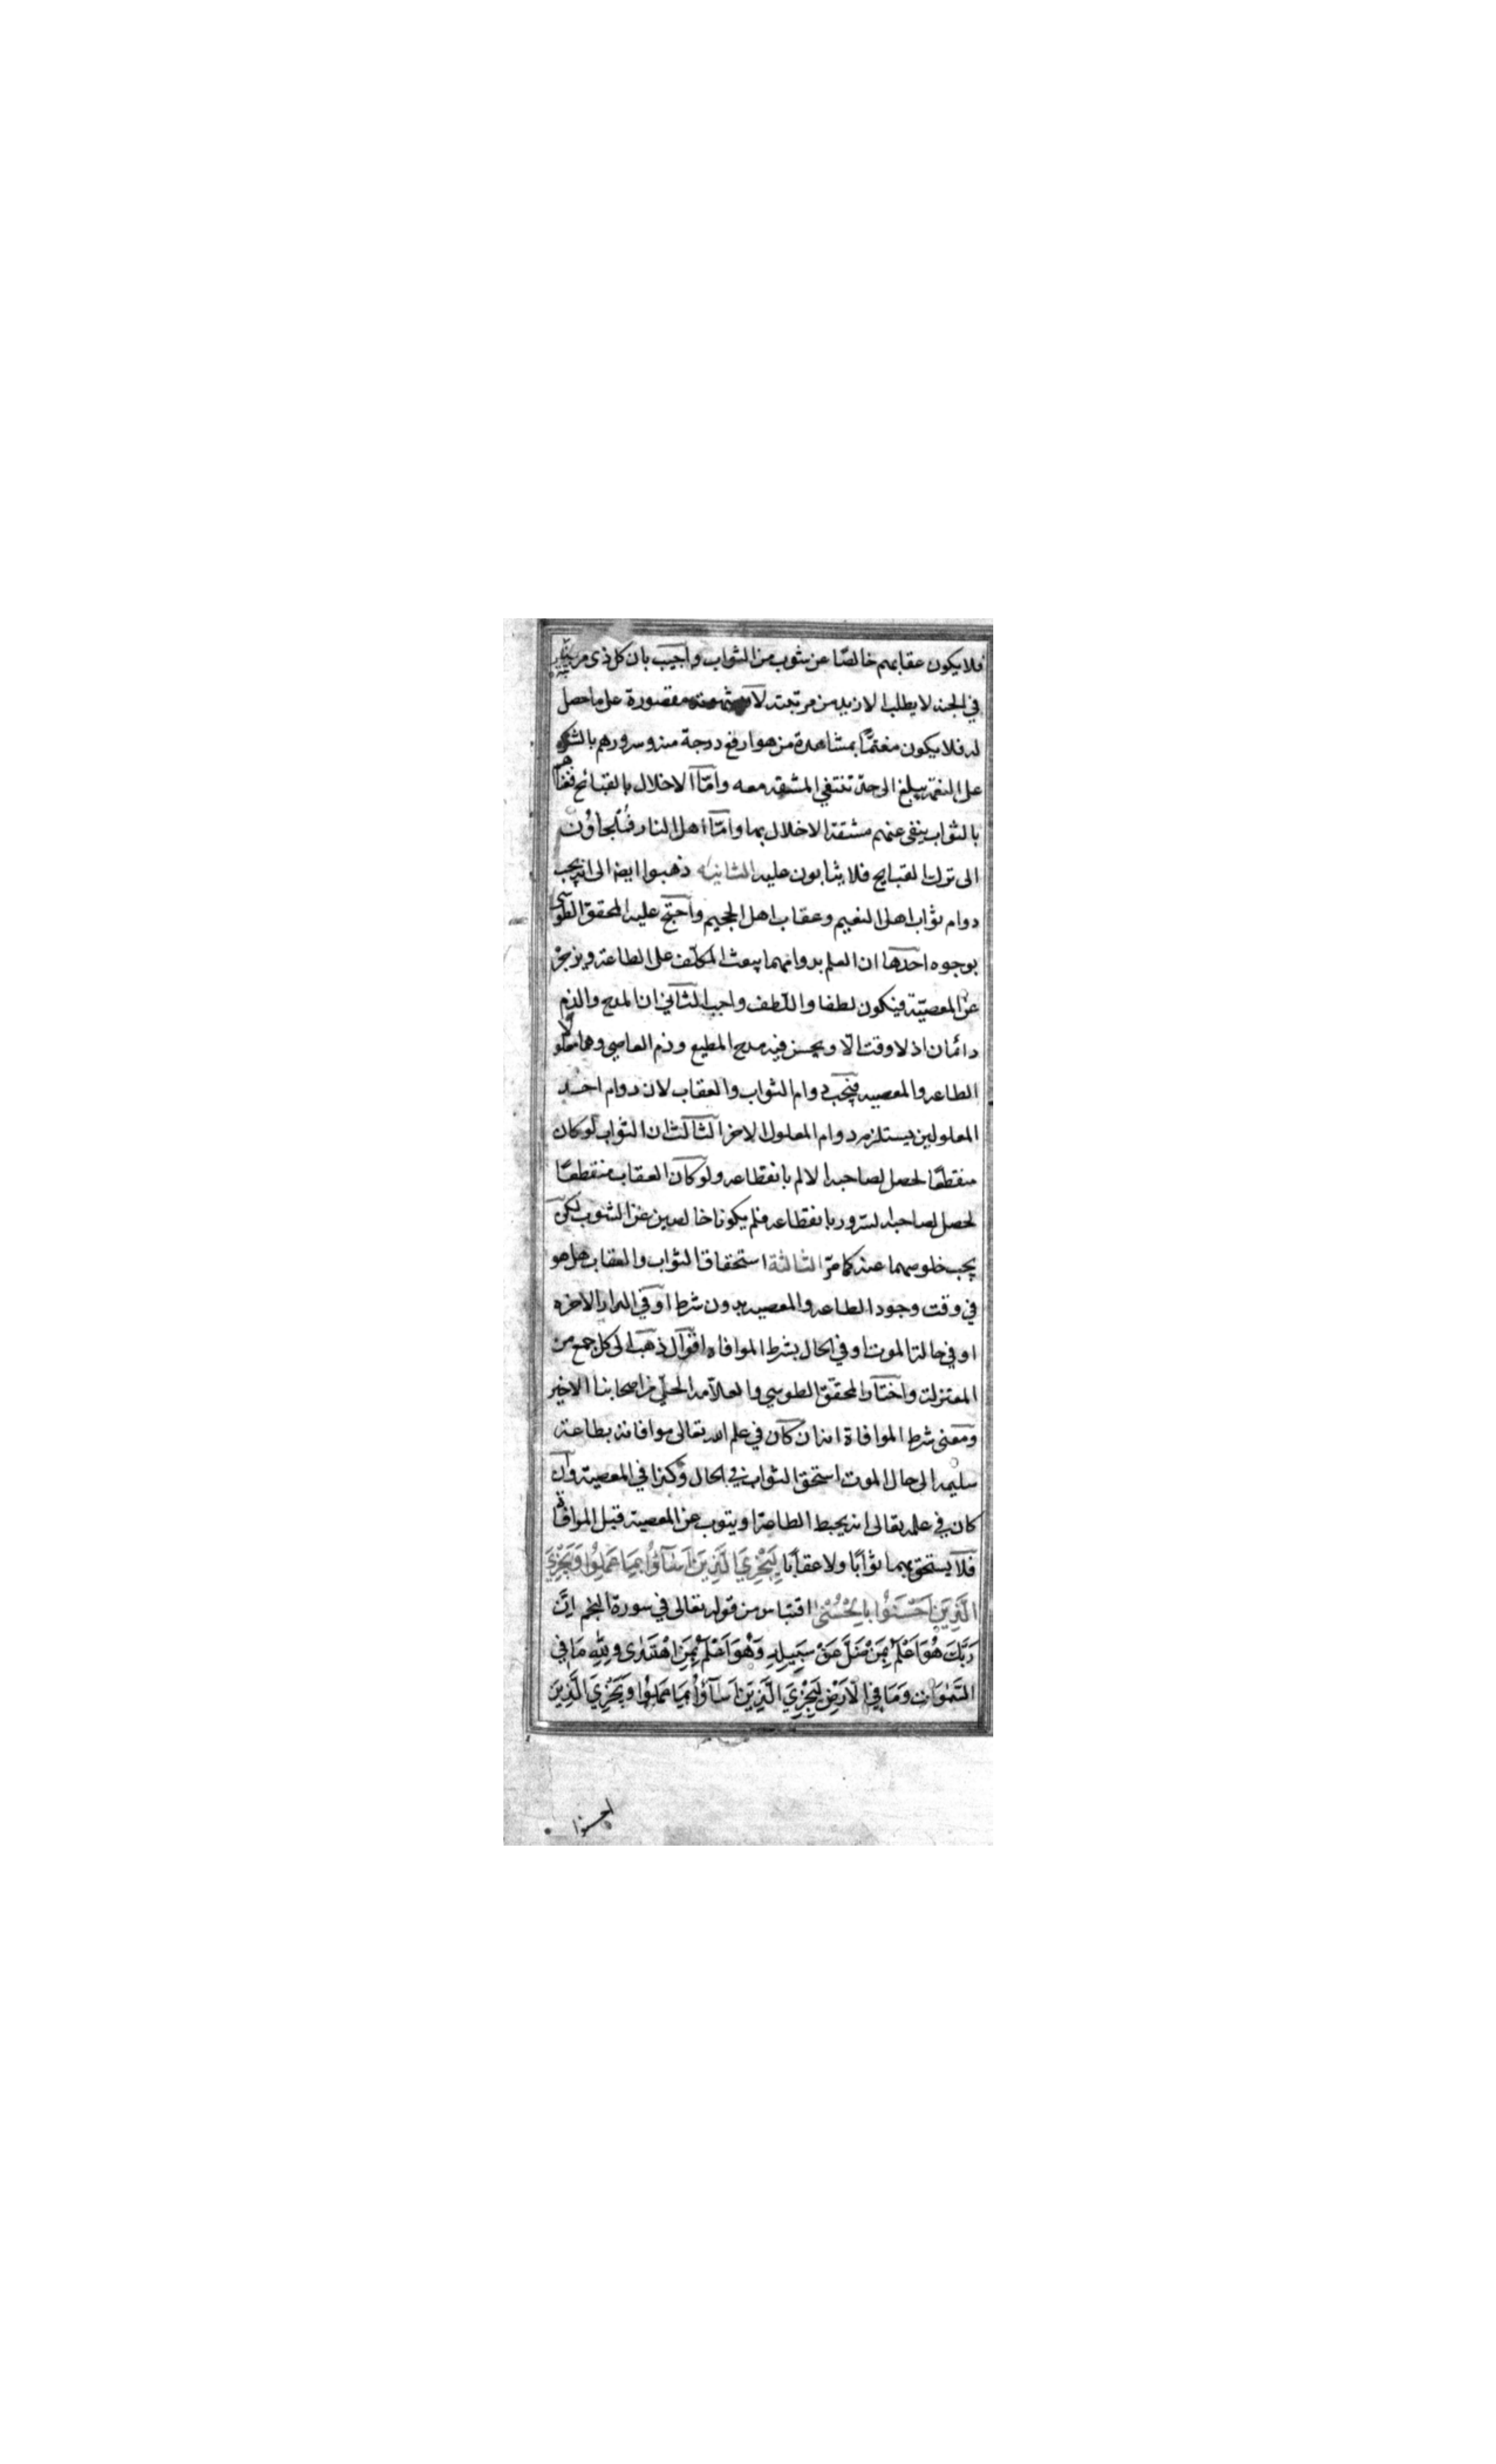 فلا يكون عقابهم خالصًا عن شوب من الثواب واجيب بان كل ذى مرتبة
في الجنة لا يطلب الازيد من مرتبته لا مقصورة على ما حصل
له فلا يكون مغتمًّا بمشاهدة من هو ارفع درجة منه وسرورهم بالشكر
على النعمة يبلغ الى حد تنتفي المشقة معه وامّا الاخلال بالقبائح فغناهم
بالثواب ينفي عنهم مشقة الاخلال بها وامّا اهل النار فيُلجاؤن
الى ترك القبايح فلا يثابون عليه الثانية ذهبوا ايضا الى انه يجب
دوام ثواب اهل النعيم وعقاب اهل الجحيم واحتج عليه المحقق الطوسي
بوجوه احدها ان العلم بدوامهما يبعث المكلّف على الطاعة ويزجره
عن المعصيّة فيكون لطفا واللّطف واجب الثاني ان المدح والذم
دائمان اذ لا وقت الّا ويحسن فيه مدح المطيع وذم العاصي وهما معلولا
الطاعه والمعصيه فيجب دوام الثواب والعقاب لان دوام احد
المعلولين يستلزم دوام المعلول الاخر الثالث ان الثواب لو كان
منقطعًا لحصل لصاحبه الالم بانقطاعه ولو كان العقاب منقطعًا
لحصل لصاحبه السّرور بانقطاعه فلم يكونا خالصين عن الشوب لكن
يجب خلوصهما عنه كما مرّ الثالثة استحقاق الثواب والعقاب هل هو
في وقت وجود الطاعه والمعصيه بدون شرط او في الدار الاخره
او في حالة الموت او في الحال بشرط الموافاه اقوال ذهب الى كل جمع من
المعتزلة واختار المحقّق الطوسي والعلّامه الحلّي من اصحابنا الاخير
ومعنى شرط الموافاة انه ان كان في علم الله تعالى موافاته بطاعة
سليمه الى حال الموت استحق الثواب في الحال وكذا في المعصية وان
كان في علمه تعالى انه يحبط الطاعة او يتوب عن المعصية قبل الموافاة
فلا يستحق بهما ثوابًا ولا عقابًا لِيَجْزِيَ الَّذِيَنَ اَسَآؤُا بِمَا عَمِلُوا وَيَجْزِيَ
الَّذِيَن اَحْسَنُوا بِالحُسْنى اقتباس من قوله تعالى في سورة النجم اِنَّ
رَبَّكَ هُوَ اَعْلَمُ بِمَنْ ضَلَّ عَنْ سَبِيلِهِ وَهُوَ اَعْلَمُ بِمَنِ اهْتَدٰى وَلِلّٰهِ مَا فِي
السَّمٰوَاتِ وَمَا فِي الاَرْضِ لِيَجْزِيَ الَّذِيَن اَسَآؤُا بِمَا عَمِلُوا وَيَجْزِيَ الَّذِينَ
احسنوا